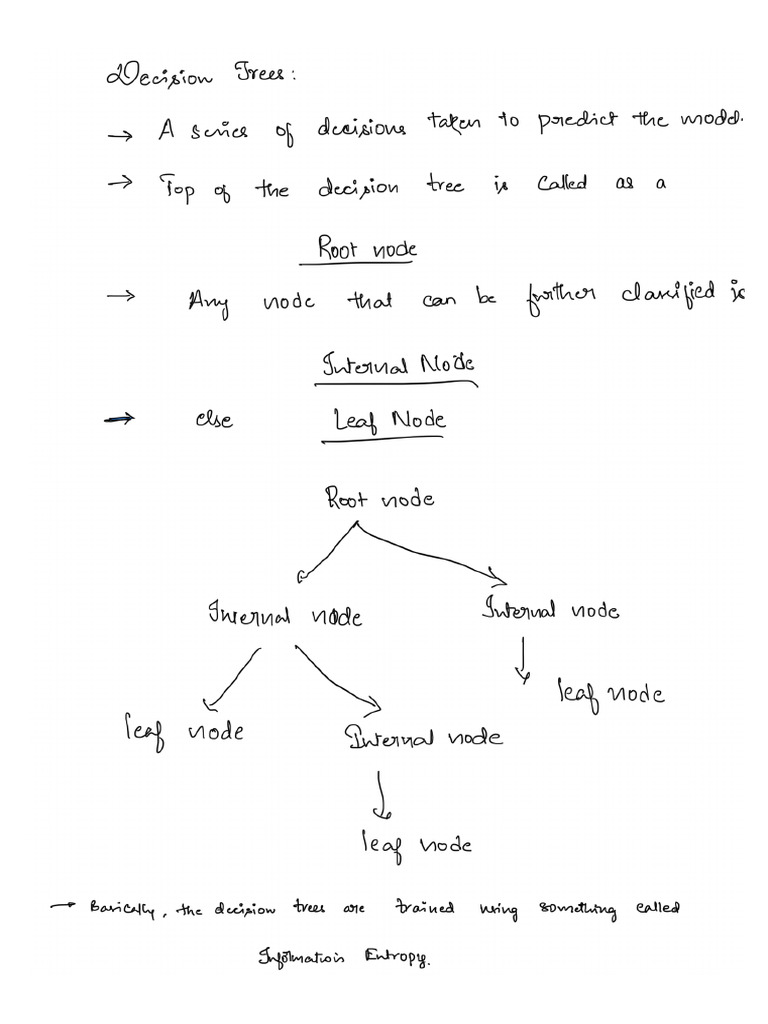 Decision Trees:
→ A series of decisions taken to predict the model.
→ Top of the decision tree is called as a
Root node
→ Any node that can be further classified is
Internal Node
→ else Leaf Node
Root node
Internal node Internal node
leaf node
leaf node Internal node
leaf node
→ Basically, the decision trees are trained using something called
Information Entropy.